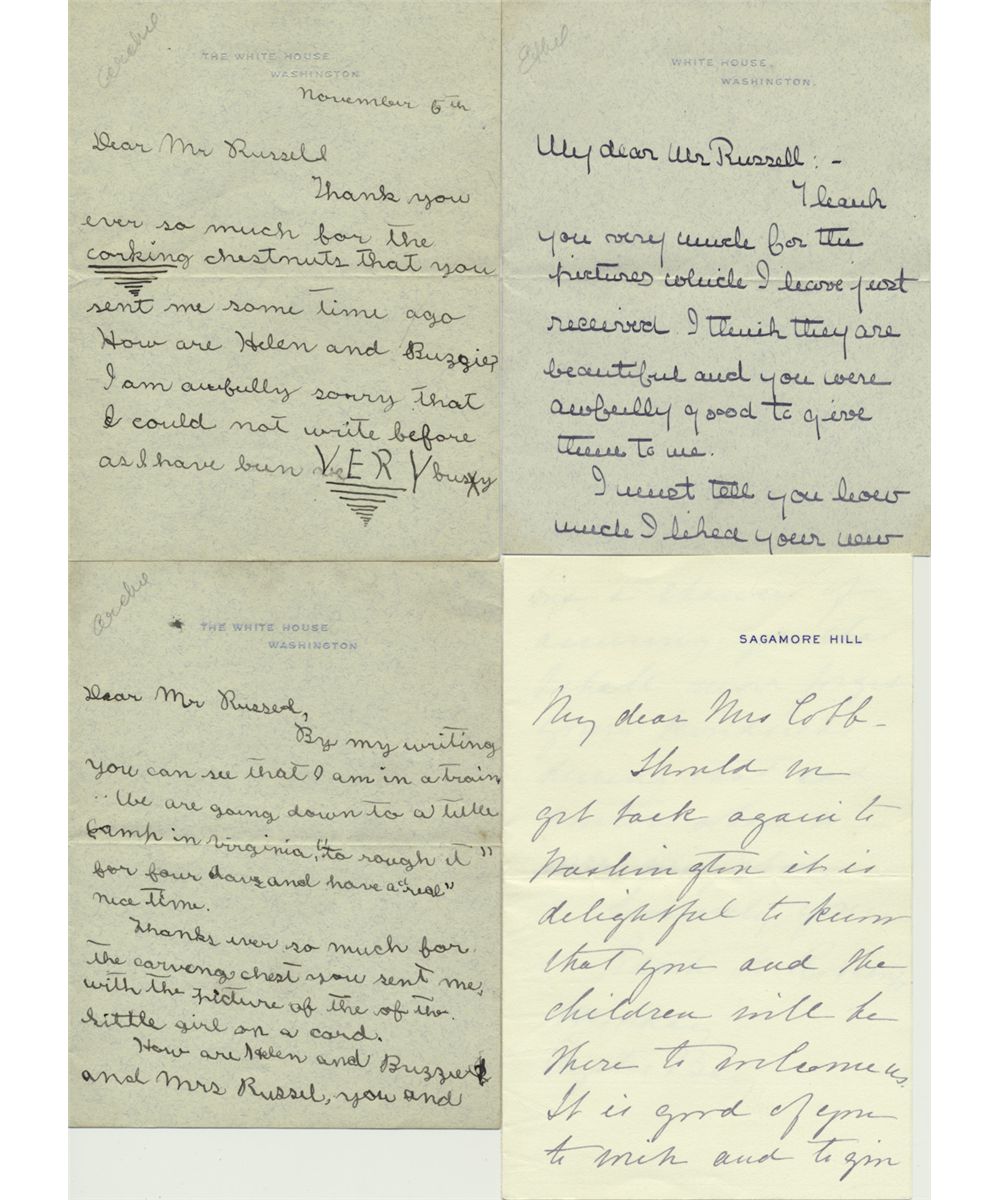 Archie
THE WHITE HOUSE
WASHINGTON
November 5th
Dear Mr Russell
Thank you
ever so much for the
corking chestnuts that you
sent me some time ago
How are Helen and Buzzie?
I am awfully sorry that
I could not write before
as I have bun ve VERY busy
Ethel
WHITE HOUSE,
WASHINGTON.
My dear Mr Russell: -
Thank
you very much for the
pictures which I have just
received. I think they are
beautiful and you were
awfully good to give
them to me.
I must tell you how
much I liked your new
Archie
THE WHITE HOUSE
WASHINGTON
Dear Mr Russel,
By my writing
you can see that I am in a train
We are going down to a little
camp in Virginia, "to rough it"
for four days and have a "real"
nice time.
Thanks ever so much for
the carving chest you sent me,
with the picture of the of the
little girl on a card.
How are Helen and Buzzie
and Mrs Russel, you and
SAGAMORE HILL
My dear Mrs Cobb -
Should we
get back again to
Washington it is
delightful to know
that you and the
children will be
there to welcome us.
It is good of you
to wish and to give